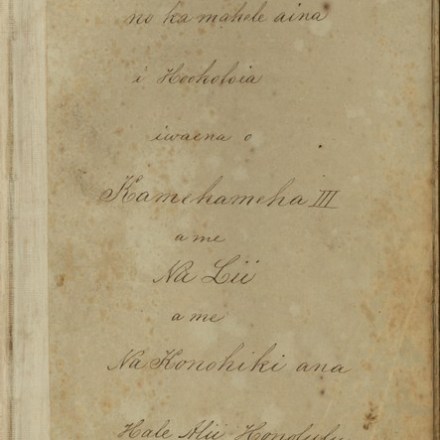 no ka mahele aina
i Hooholoia
iwaena o
Kamehameha III
a me
Na Lii
a me
Na Konohiki ana
Hale Alii Honolulu